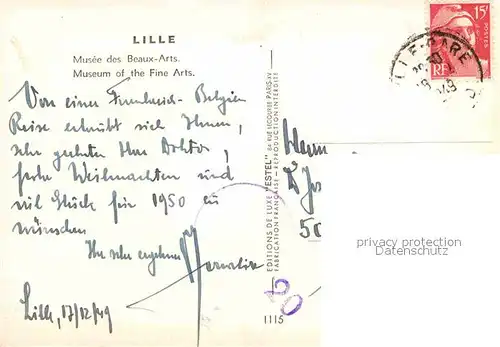 LILLE
Musée des Beaux-Arts.
Museum of the Fine Arts.
Von einer Frankreich-Belgien
Reise erlaubt sich Ihnen,
sehr geehrter Herr Doktor,
frohe Weihnachten und
viel Glück für 1950 zu
wünschen
Ihr sehr ergebener
Lille, 17/12/49
EDITIONS DE LUXE "ESTEL" PARIS-XV
FABRICATION FRANÇAISE - REPRODUCTION INTERDITE
1115
20
15F
POSTES
RF
LILLE-GARE
Herrn
D
50
privacy protection
Datenschutz